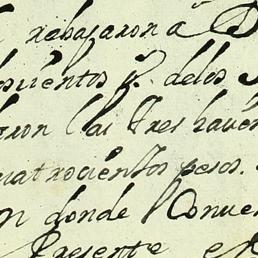 rebajaron a D
osientos ps. delos
ron las tres hauen
uatrocientos pesos.
n donde Conue
Presente